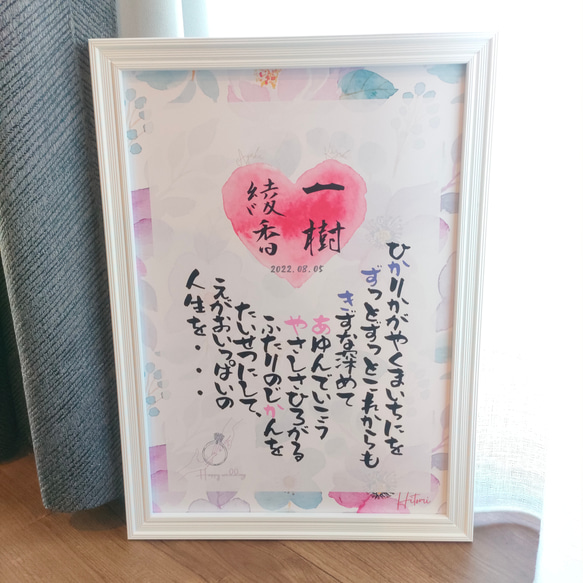 一樹
綾香
2022.08.05
ひかりかがやくまいにちにを
ずっとずっとこれからも
きずな深めて
あゆんでいこう
やさしさひろがる
ふたりのじかんを
たいせつにして
えがおいっぱいの
人生を・・・
Happy wedding
Hitomi